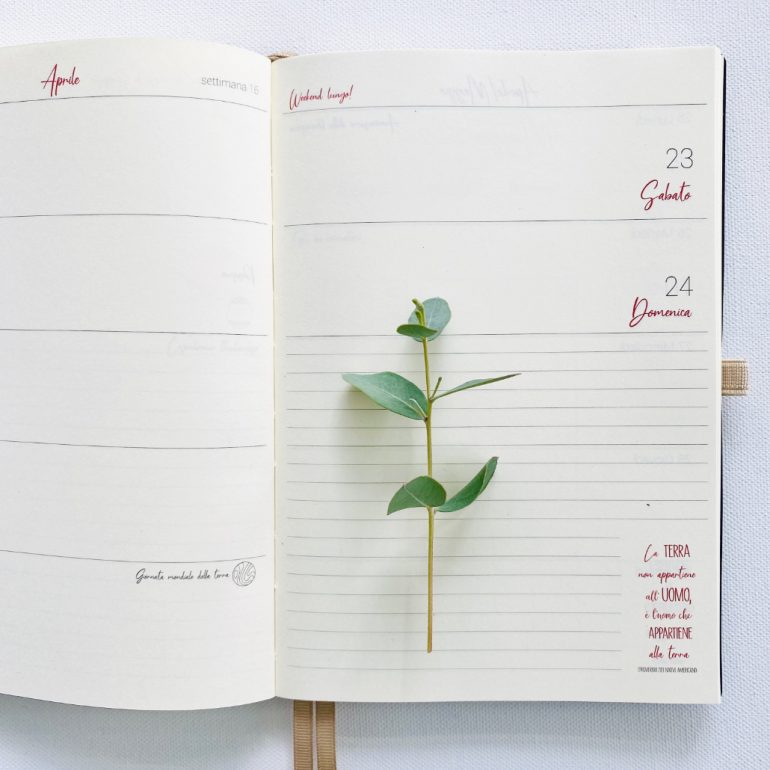 Aprile
settimana 16
Giornata mondiale della terra
Weekend lungo!
23
Sabato
24
Domenica
La TERRA
non appartiene
all'UOMO,
è l'uomo che
APPARTIENE
alla terra
PROVERBIO DEI NATIVI AMERICANI